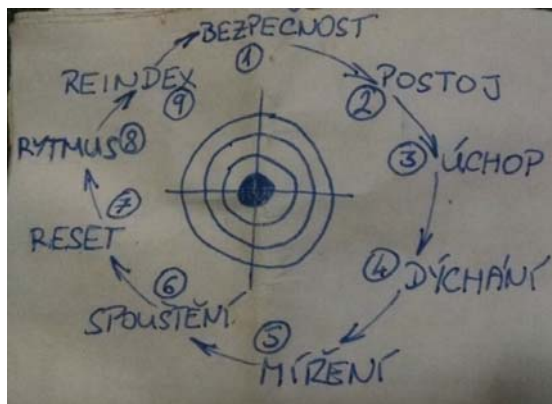 BEZPEČNOST
①
POSTOJ
②
③ ÚCHOP
④ DÝCHÁNÍ
⑤
MÍŘENÍ
⑥
SPOUŠTĚNÍ
⑦
RESET
RYTMUS ⑧
REINDEX
⑨